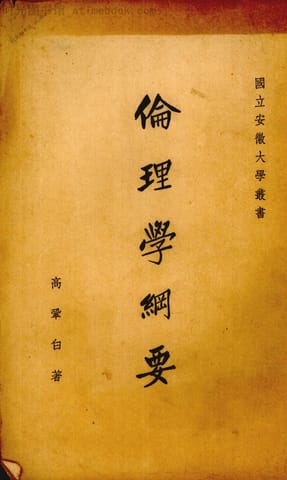 國立安徽大學叢書
倫理學綱要
高鞏白著